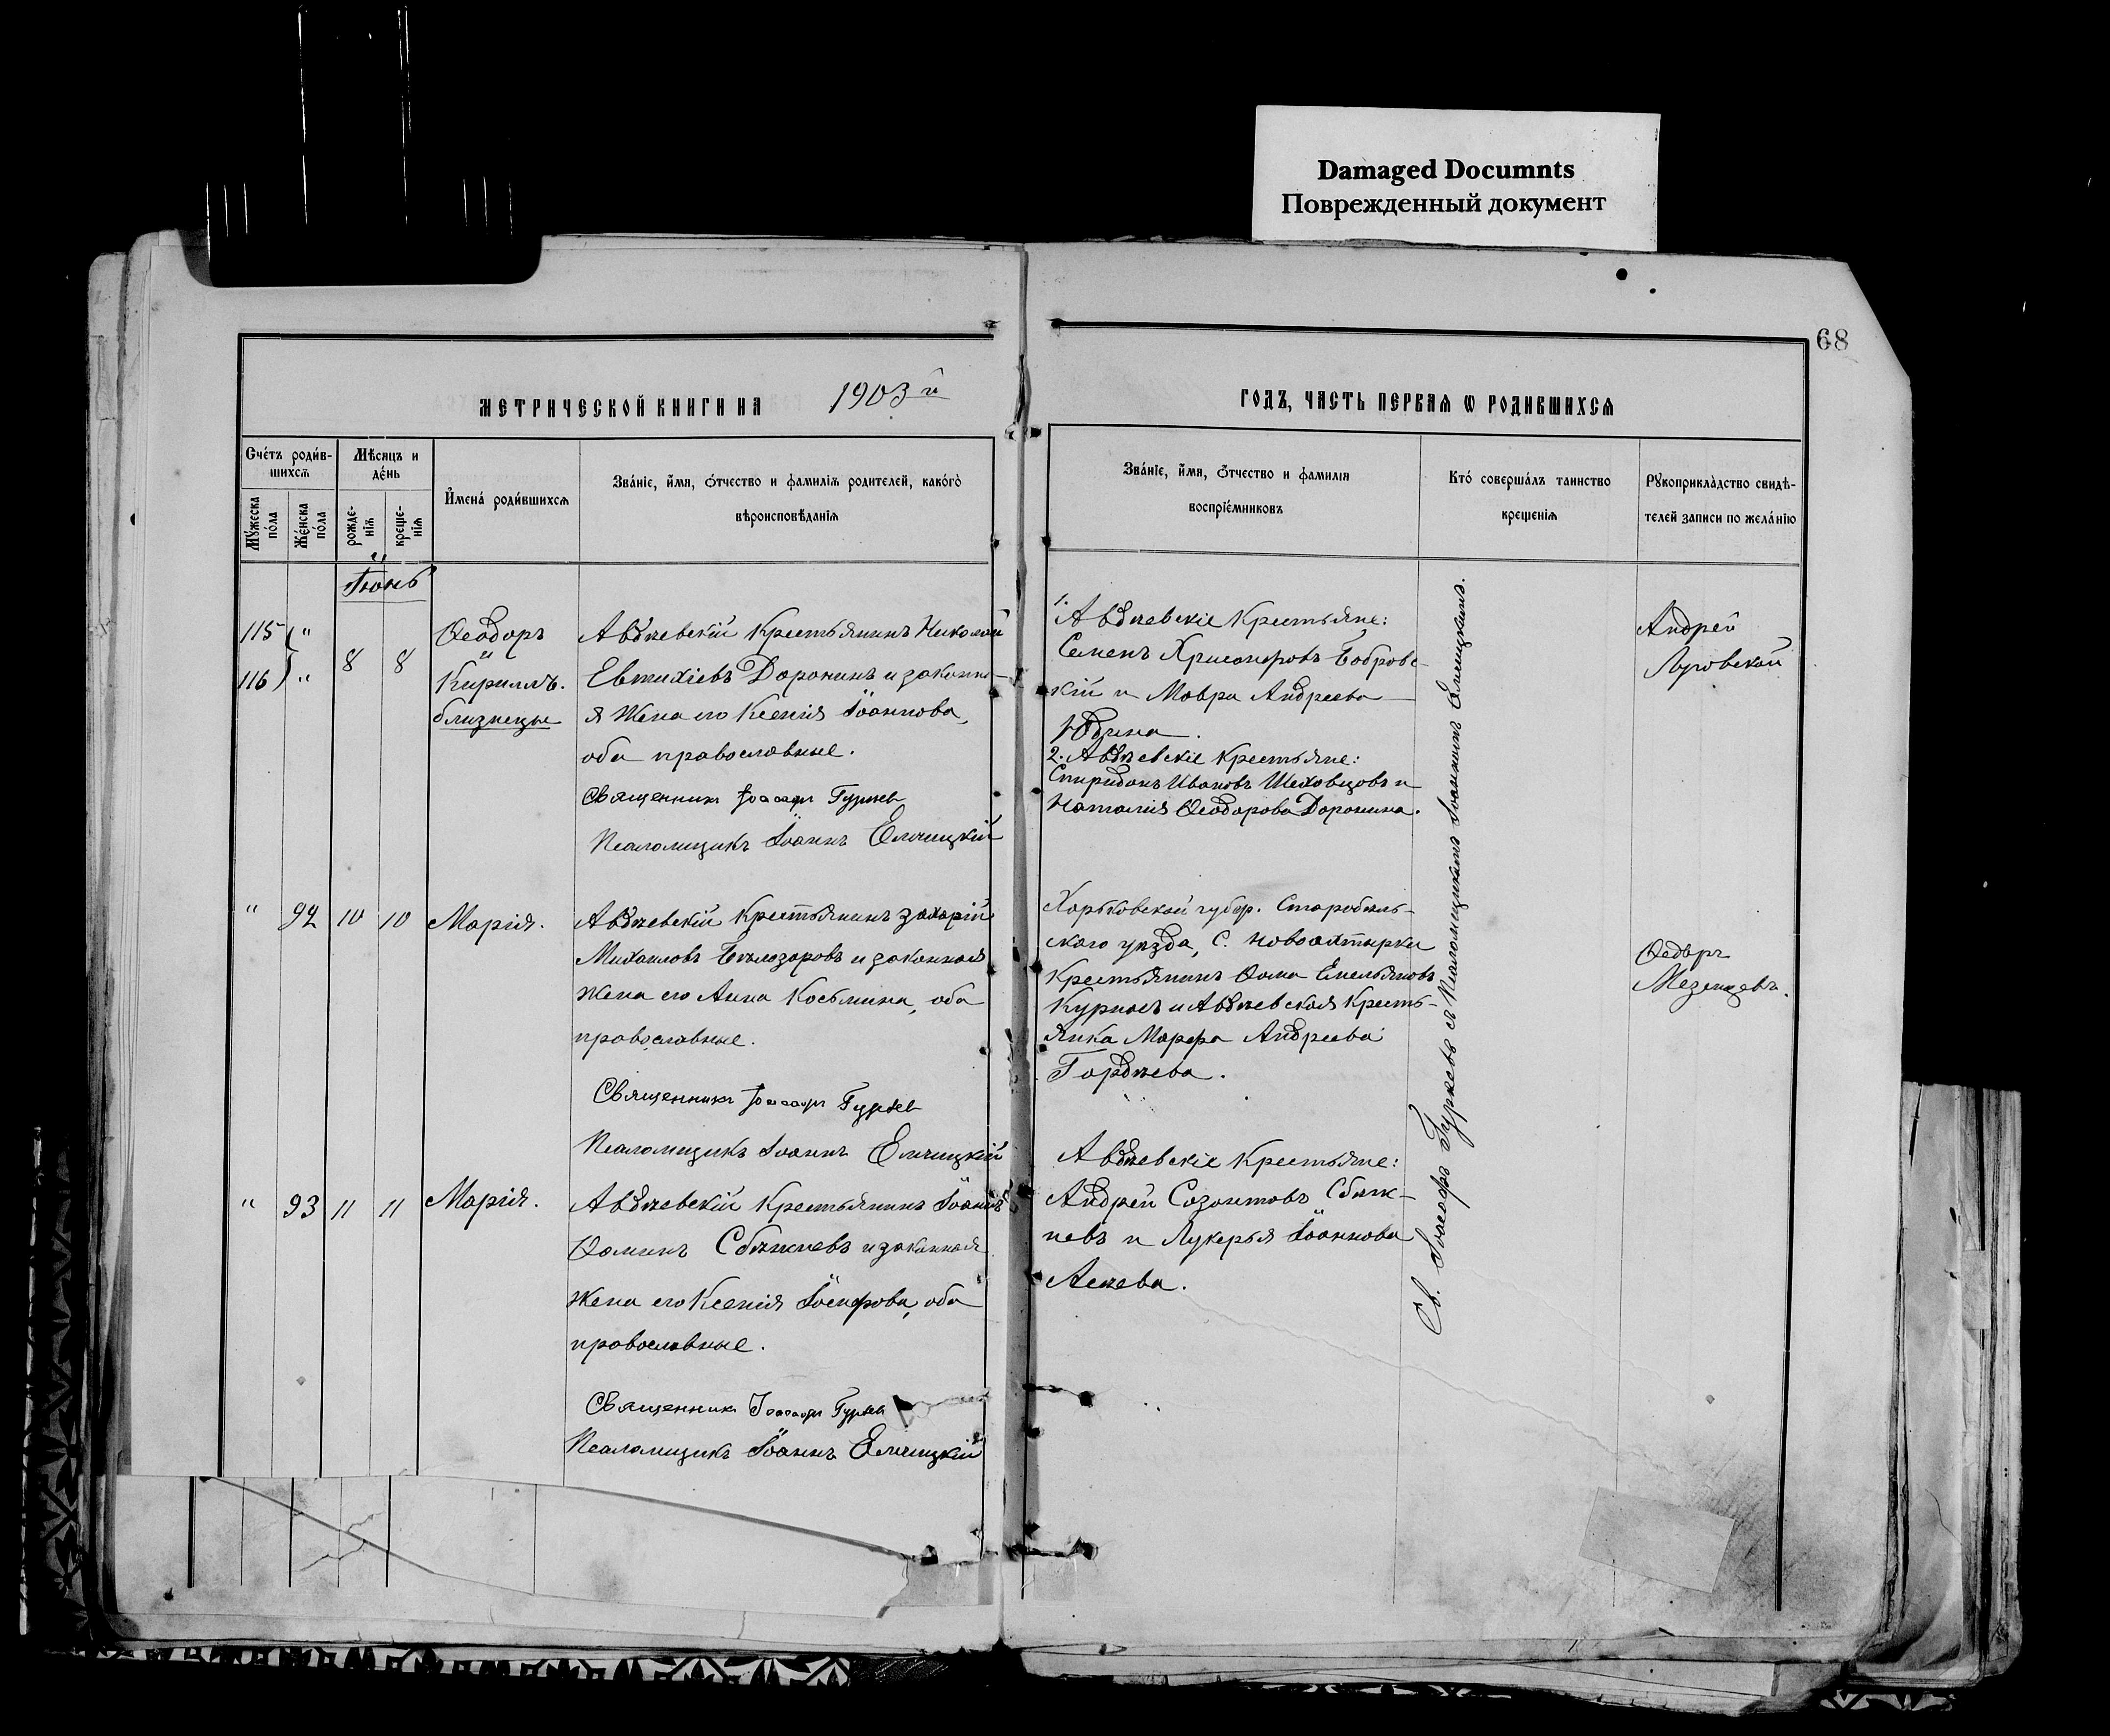 Damaged Documnts
Поврежденный документ
68
МЕТРИЧЕСКОЙ КНИГИ НА 1903 й
ГОДЪ, ЧАСТЬ ПЕРВАѦ Ѡ РОДИВШИХСѦ
Счéтъ роди́в-
шихсѧ
Мꙋ́жеска
по́ла
Же́нска
по́ла
Мѣ́сяцъ и
де́нь
рожде-
нїѧ
креще-
нїѧ
И҆мена́ роди́вшихсѧ
Зва́нїе, и҆́мя, ѻ҆́тчество и фамилїѧ родителей, како́гѡ
вѣроисповѣ́данїѧ
Зва́нїе, и҆́мя, ѻ҆́тчество и фамилїѧ
воспрїе́мниковъ
Кто́ соверша́лъ таинство
крещенїѧ
Рꙋкоприкла́дство свидѣ́-
телей записи по жела́нїю
Іюнь
115 "
116 "
8 8
Ѳеодоръ
и
Кириллъ.
близнецы
Авдѣевскій Крестьянинъ Николай
Евтихіевъ Доронинъ и законна-
я жена его Ксенія Іоаннова,
оба православные.
Священникъ Іоасафъ Гурьев
Псаломщикъ Іоаннъ Елчицкій
1. Авдѣевскіе Крестьяне:
Семенъ Хрисанфовъ Бобровс-
кій и Мавра Андреева
Юдина.
2. Авдѣевскіе Крестьяне:
Спиридонъ Ивановъ Шеховцовъ и
Наталія Ѳеодорова Доронина.
Андрей
Луговской
" 92 10 10 Марія.
Авдѣевскій Крестьянинъ Захарій
Михаиловъ Бѣлозоровъ и законная
жена его Анна Косьмина, оба
православные.
Священникъ Іоасафъ Гурьев
Псаломщикъ Іоаннъ Елчицкій
Харьковской губер. Старобѣль-
скаго уѣзда, С. Новоахтырки
Крестьянинъ Ѳома Емельяновъ
и Авдѣевская Кресть-
янка Марѳа Андреева
Гордѣева.
Ѳедоръ
Мезенцевъ.
" 93 11 11 Марія.
Авдѣевскій Крестьянинъ Іоаннъ
Ѳоминъ Сбѣжневъ и законная
жена его Ксенія Іосифова, оба
православные.
Священникъ Іоасафъ Гурьев
Псаломщикъ Іоаннъ Елчицкій
Авдѣевскіе Крестьяне:
Андрей Созонтовъ Сбѣж-
невъ и Лукерья Іоаннова
Асѣева.
Св. Іоасафъ Гурьевъ съ Псаломщикомъ Іоанномъ Елчицкимъ.